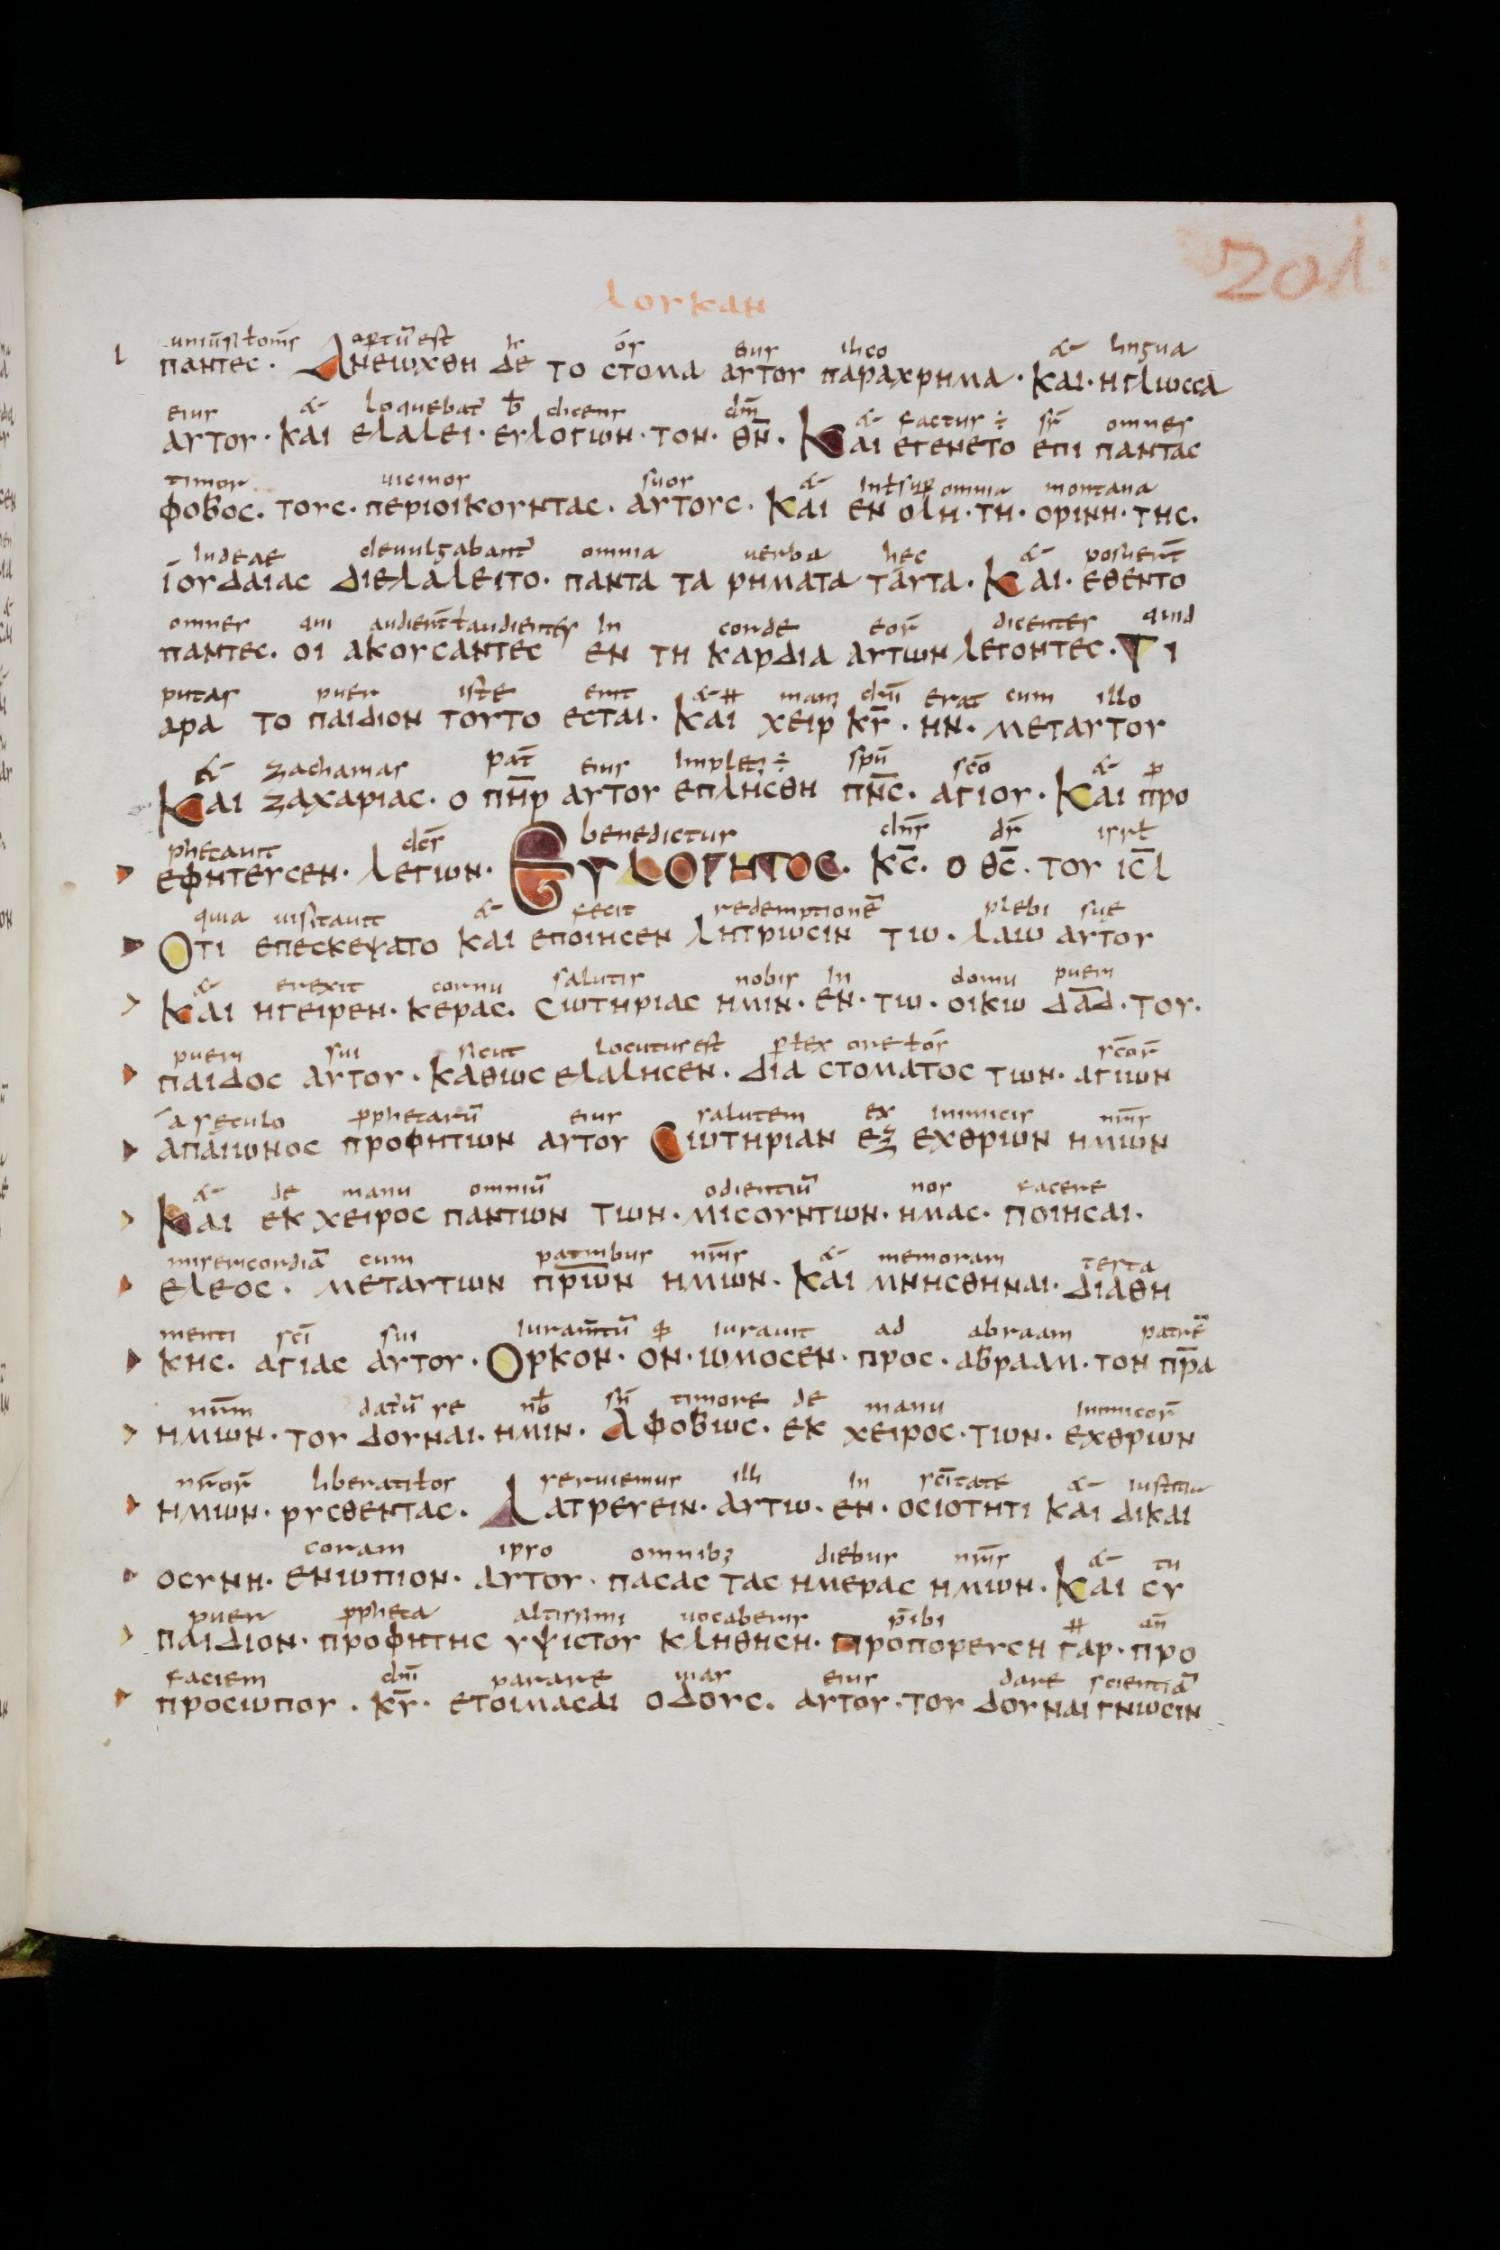 201
λουκαν
uniuersi ł omīs apertū est h̄ ōs eius ilico & lingua
παντεc. Ανειωχθη δε το cτομα αυτου παραχρημα. και. η γλωccα
eius & loquebat̄ b̄ dicens dm̄
αυτου. και ελαλει. ευλογων. τον. θ̄ν̄. Και εγενετο επι πανταc
timor uicinos suos & omnia montana
φοβοc. τουc. περιοικουνταc. αυτουc. Και εν ολη. τη. ορινη. τηc.
iudeae deuulgabant̄ omnia uerba hec & posuer̄t
ϊουδαιαc διελαλειτο. παντα τα ρηματα ταυτα. Και. εθεντο
omnes qui audiēt ł audientes in corde eor̄ dicentes quid
παντεc. οι ακουcαντεc εν τη καρδια αυτων λεγοντεc. Τι
putas puer iste erit & manus dn̄i erat cum illo
αρα το παιδιον τουτο εcται. και χειρ κ̄ῡ. ην. μεταυτου
& zacharias pat̄ eius implet; ÷ spū sc̄o & p
Και ζαχαριαc. ο π̄η̄ρ̄ αυτου επληcθη π̄ν̄c̄. αγιου. Και προ
phetauit benedictus dn̄s ds̄ isrł
εφητευcεν. λεγων. Ευλογητοc. κ̄c̄. ο θ̄c̄. του ιc̄λ
quia uisitauit & fecit redemptionē plebi suę
Οτι επεcκεψατο και εποιηcεν λητρωcιν τω. λαω αυτου
& erexit cornu salutis nobis in domu pueri
Και ηγειρεν. κεραc. cωτηριαc ημιν. εν. τω. οικω δ̄ᾱδ̄. του.
pueri sui sicut locutus est p ł ex ore scōr̄
παιδοc αυτου. καθωc ελαληcεν. δια cτοματοc των. αγιων
a sęculo pphetarū eius salutem ex inimicis nr̄is
απαιωνοc προφητων αυτου Cωτηριαν εξ εχθρων ημων
& de manu omniū odientiū nos facere
Και εκ χειροc παντων των. μιcουντων. ημαc. ποιηcαι.
misericordiā cum patribus nr̄is & memorari testa
ελεοc. μεταυτων π̄ρ̄ων ημων. Και μνηcθηναι. διαθη
menti sc̄i sui iuram̄tū iurauit ad abraam patrē
κηc. αγιαc αυτου. Ορκον. ον. ωμοcεν. προc. αβρααμ. τον π̄ρ̄α
nr̄m datū re nob̄ sn̄ timore de manu inimicor̄
ημων. του δουναι. ημιν. Αφοβωc. εκ χειροc. των. εχθρων
nr̄or̄ liberati ł os seruiemus illi in sc̄itate & iustitia
ημων. ρυcθενταc. Λατρευειν. αυτω. εν. οcιοτητι και δικαι
coram ipso omnib; diebus nr̄is & tu
οcυνη. ενωπιον. αυτου. παcαc ταc ημεραc ημων. Και cυ
puer ppheta altissimi uocaberis p̄ibi an̄
παιδιον. προφητηc υψιcτου κληθηcη. προπορευcη γαρ. προ
faciem dn̄i parare uias eius dare scientiā
προcωπου. κ̄ῡ. ετοιμαcαι οδουc. αυτου. του δουναι γνωcιν